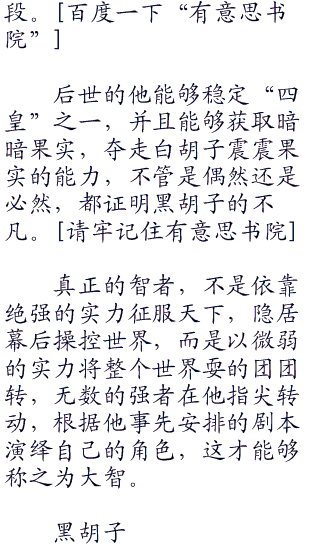 段。[百度一下“有意思书
院”]
后世的他能够稳定“四
皇”之一，并且能够获取暗
暗果实，夺走白胡子震震果
实的能力，不管是偶然还是
必然，都证明黑胡子的不
凡。[请牢记住有意思书院]
真正的智者，不是依靠
绝强的实力征服天下，隐居
幕后操控世界，而是以微弱
的实力将整个世界耍的团团
转，无数的强者在他指尖转
动，根据他事先安排的剧本
演绎自己的角色，这才能够
称之为大智。
黑胡子